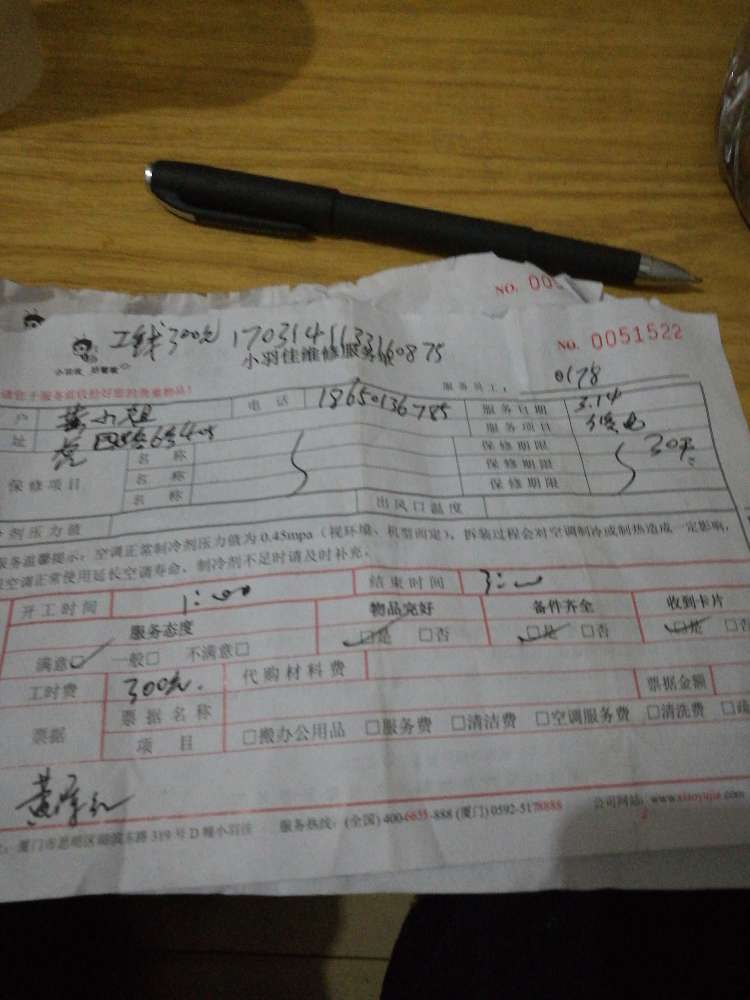 NO. 00
工钱300元 1703141133160875
小羽佳维修服务单
NO. 0051522
小羽佳
服务员工： 0178
户 黄小姐 电话 18650136785 服务日期 3.14
址 服务项目 修电
保修项目 名称 保修期限 30天
名称 保修期限
名称 保修期限
剂压力值 出风口温度
服务温馨提示：空调正常制冷剂压力值为0.45mpa（视环境、机型而定），拆装过程会对空调制冷或制热造成一定影响，
空调正常使用延长空调寿命，制冷剂不足时请及时补充；
开工时间 1:00 结束时间 3:00
服务态度 物品完好 备件齐全 收到卡片
满意□ 一般□ 不满意□ □是 □否 □是 □否 □是 □否
工时费 300元. 代购材料费
票据 票据名称 票据金额
项目 □搬办公用品 □服务费 □清洁费 □空调服务费 □清洗费
厦门市思明区湖滨东路319号D幢小羽佳 服务热线：(全国) 400-6655-888 (厦门) 0592-5178888 公司网站：www.xiaoyujia.com
2